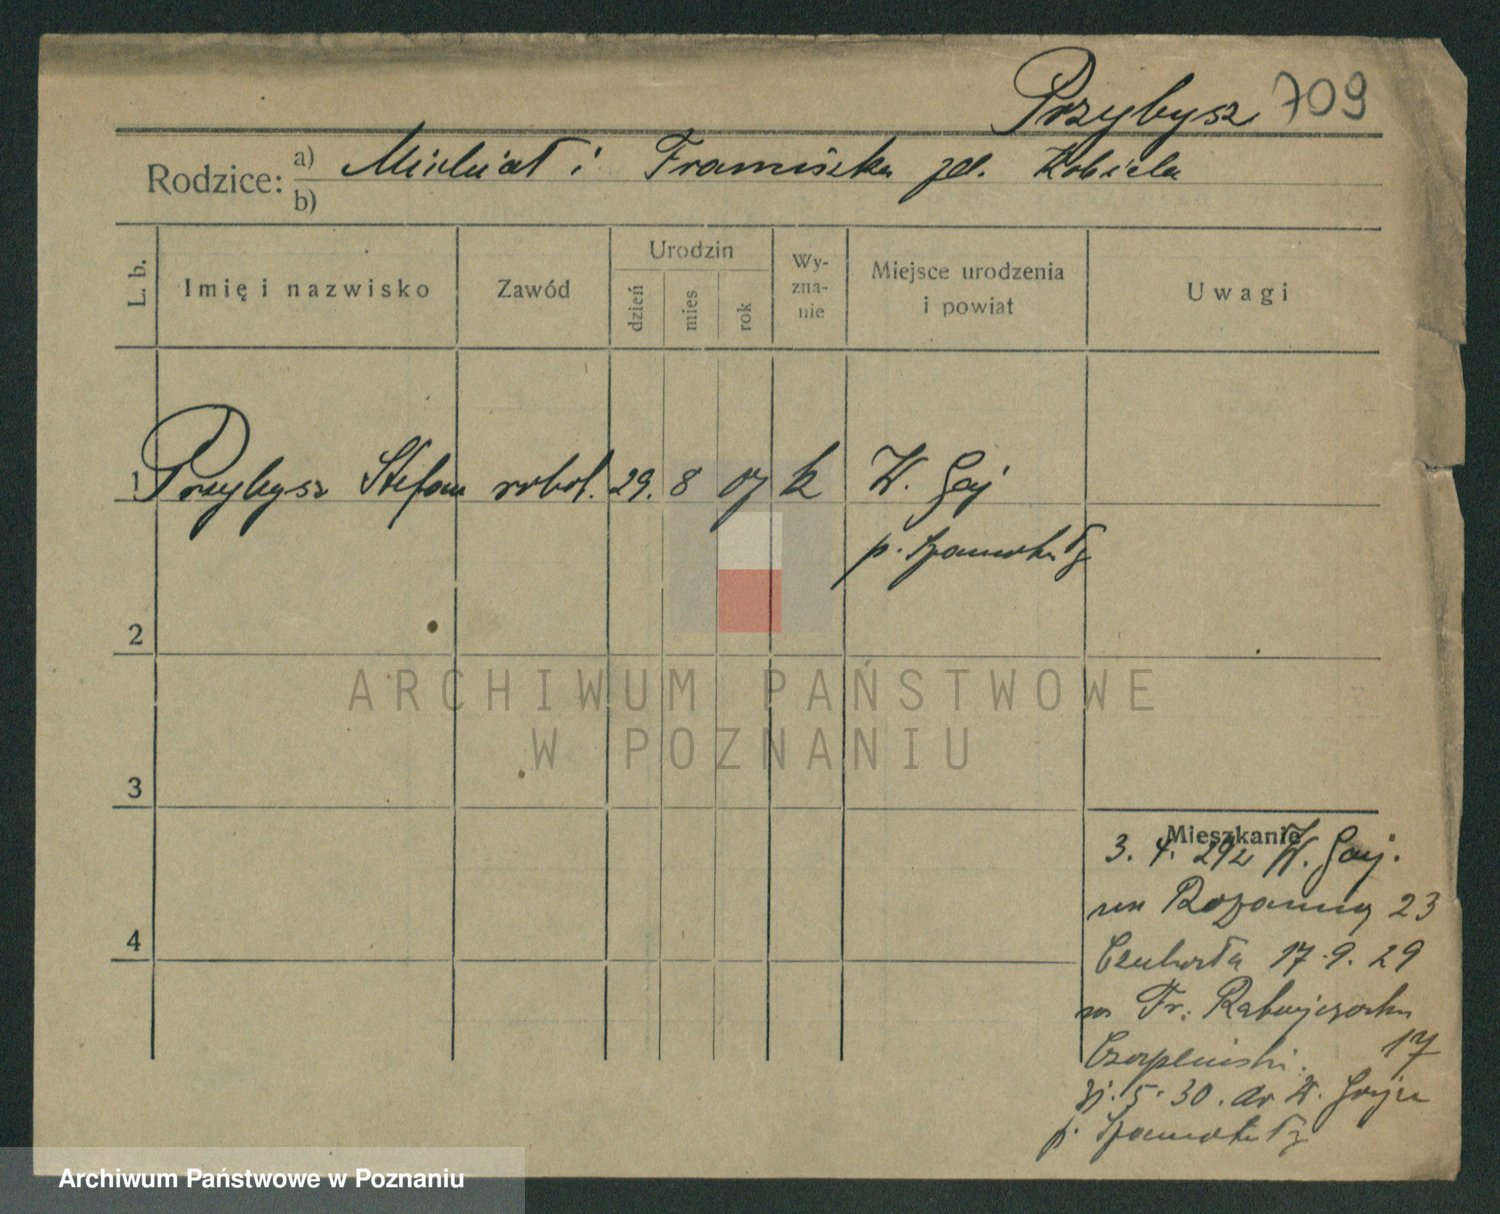 Przybysz 709
Rodzice: a) Michał i Franciszka zd. Kobiela
b)
L. b.
Imię i nazwisko
Zawód
Urodzin
dzień
mies
rok
Wy-
zna-
nie
Miejsce urodzenia
i powiat
Uwagi
1 Przybysz Stefan robot. 29. 8 07 k W. Gaj
p. Szamotuły
2
3
4
Mieszkanie
3. 4. 29 z W. Gaj.
na 23
17.9.29
Fr. Ratajczaka
17
5. 30. do W. Gaju
p. Szamotuły
ARCHIWUM PAŃSTWOWE
W POZNANIU
Archiwum Państwowe w Poznaniu